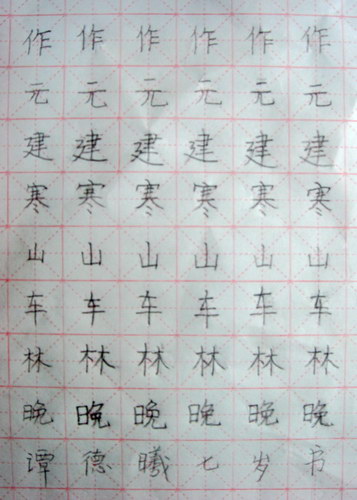 作作作作作作
元元元元元元
建建建建建建
寒寒寒寒寒寒
山山山山山山
车车车车车车
林林林林林林
晚晚晚晚晚晚
谭德曦七岁书